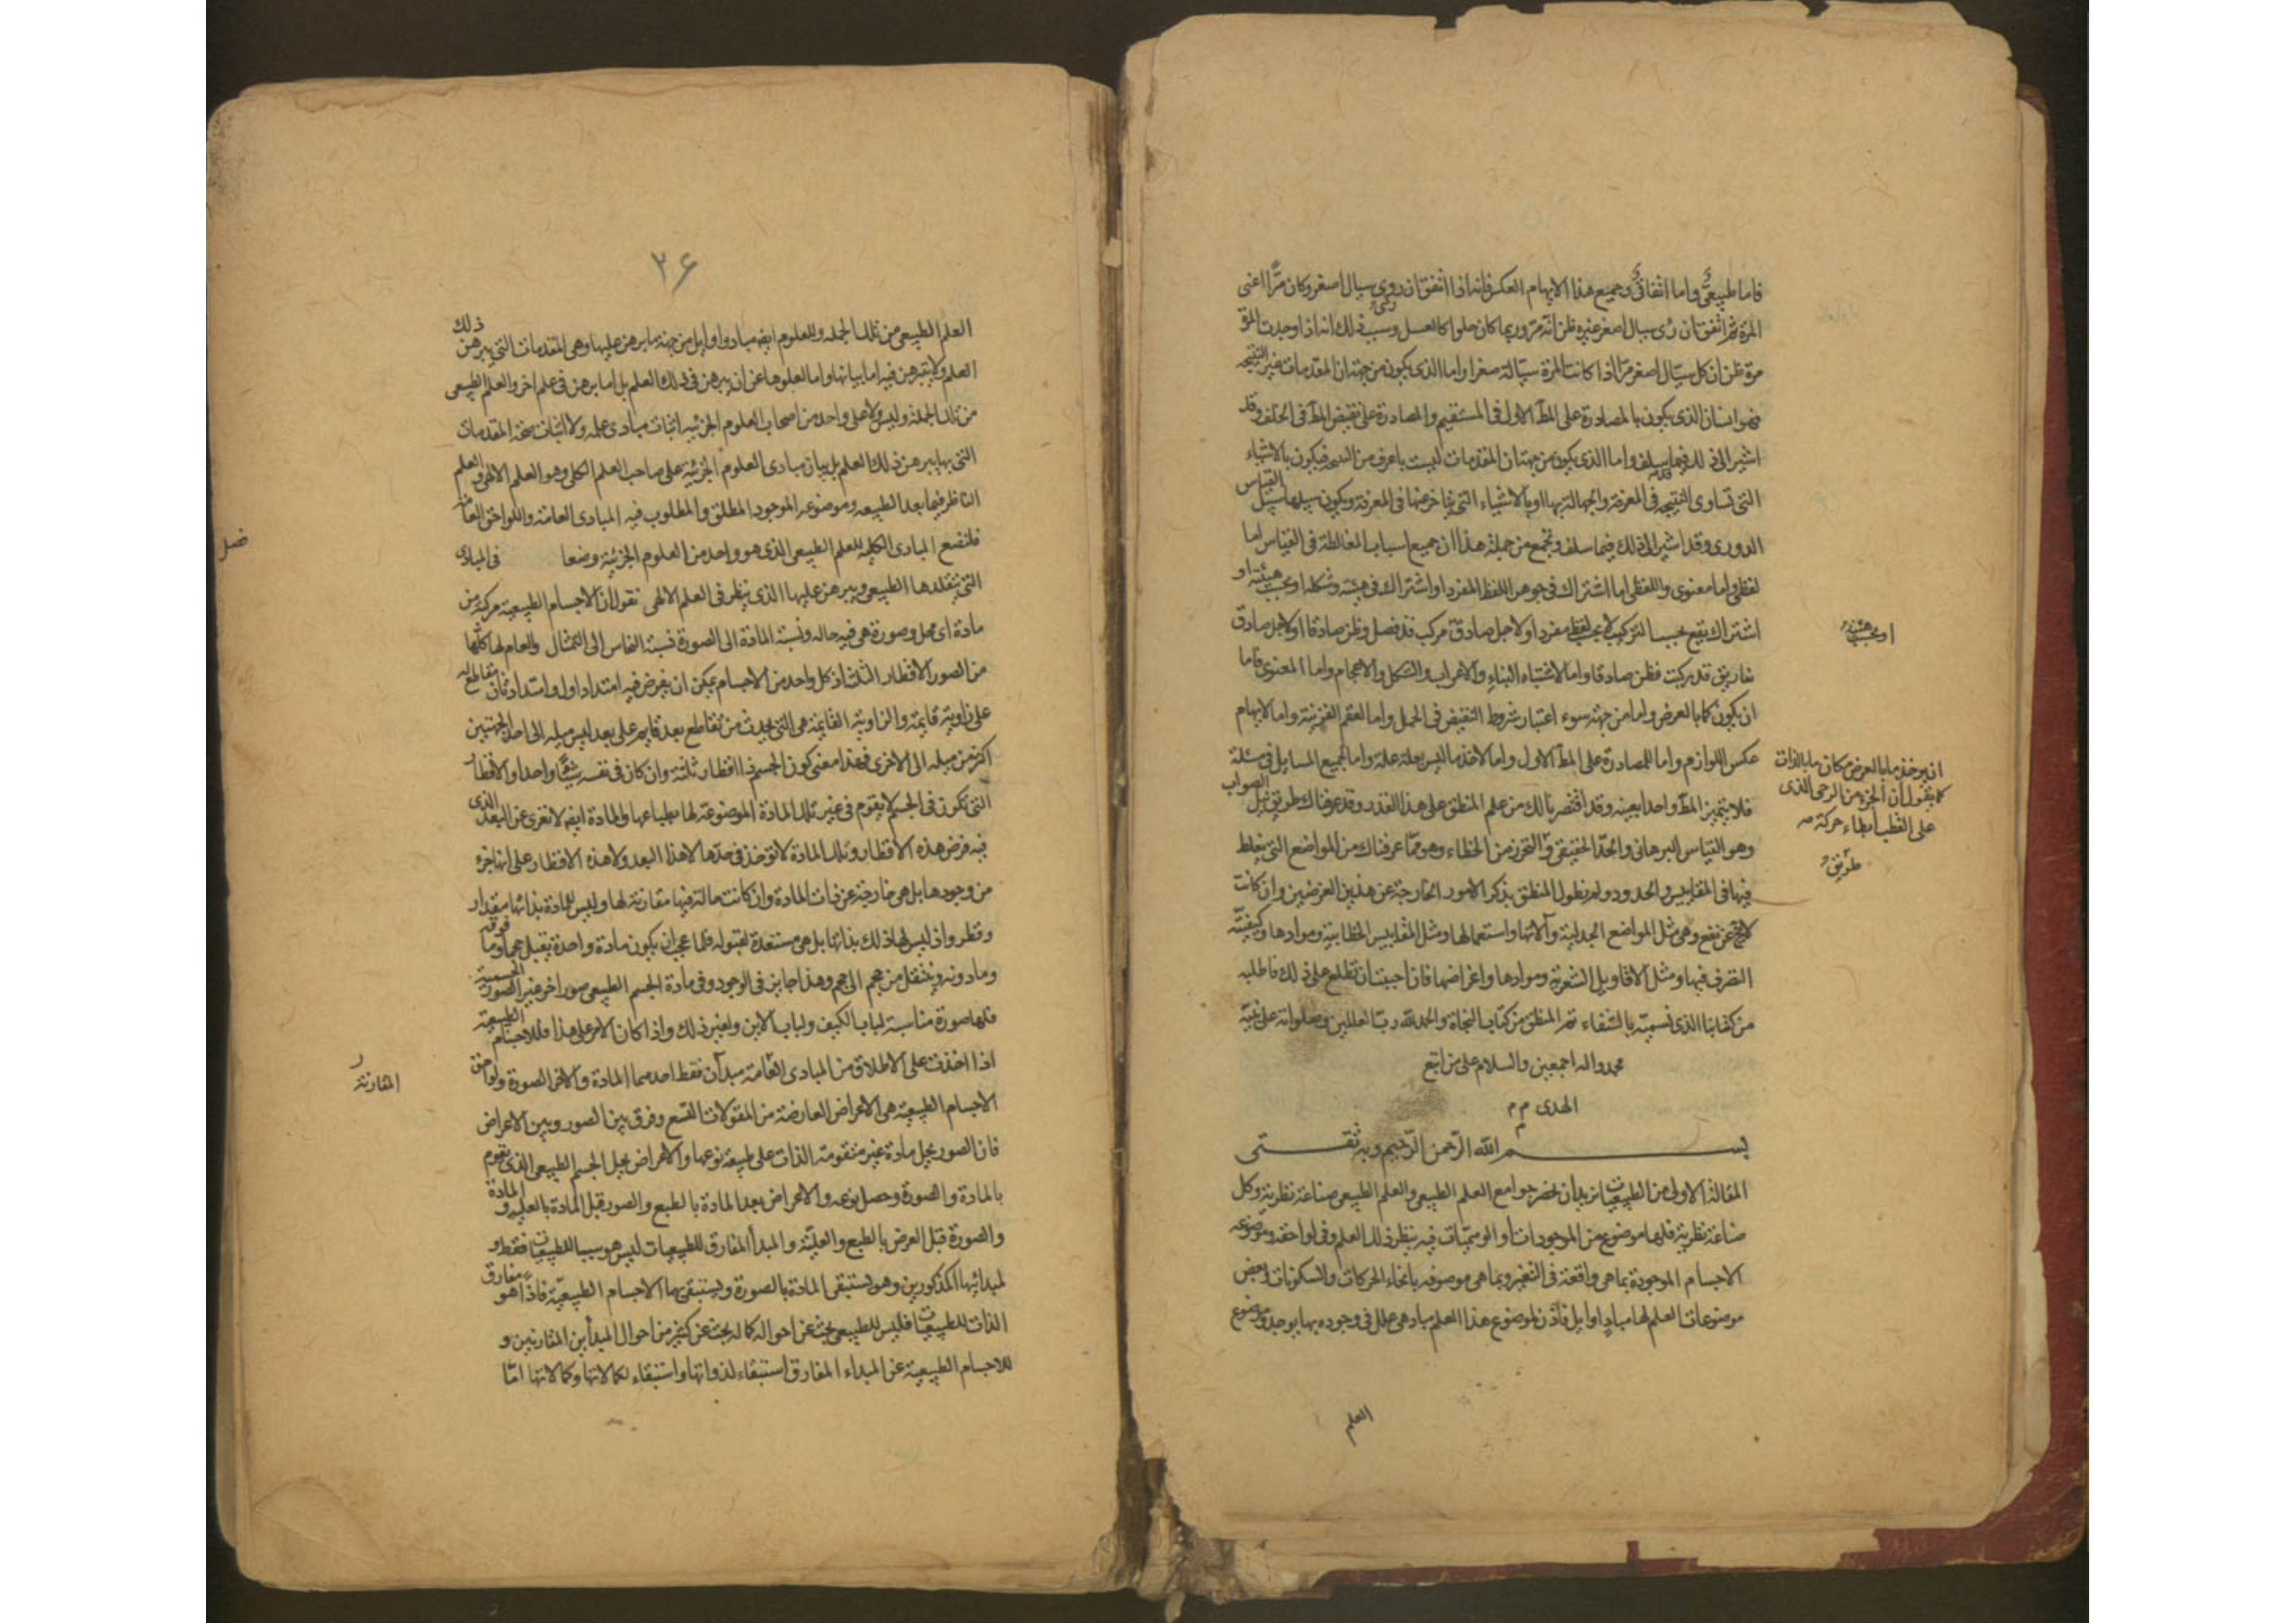 فاما طبیعیّ واما اتفاقیّ وجمیع هذا الایهام العکس فانه اذا اتفق ان روی سیال اصفر وکان مرًّا اعنی
المرة ثم اتفق ان رُئی سیال اصفر غیره ظن انه مرّ وربما کان حلوا کالعسل وسبب ذلک انه اذا وجدت المرّة
مرة ظن ان کل سیّال اصفر مرّ اذا کانت المرة سیّالة صفرا واما الذی یکون من جهة ان المقدمات غیر النتیجه
فهو البیان الذی یکون بالمصادرة علی المط الاول فی المستقیم والمصادرة علی نقیض المط فی الخلف وقد
اشیر الی ذلک فیما سلف واما الذی یکون من جهة ان المقدمات لیست باعرف من النتیجه فیکون بالاشیاء
التی تساوی النتیجه فی المعرفة والجهالة بها او بالاشیاء التی یتاخر عنها فی المعرفة ویکون سبیلها سبیل القیاس
الدوری وقد اشیر الی ذلک فیما سلف وتجمع من جملة هذا ان جمیع اسباب المغالطة فی القیاس اما
لفظی واما معنوی واللفظی اما اشتراک فی جوهر اللفظ المفرد او اشتراک فی هیئته وشکله او بحسب هیئته او
اشتراک یقع بحسب الترکیب لا بحسب لفظ مفرد او لاجل صادق مرکب قد فصل وظن صادقا او لاجل صادق
تفاریق قد رکبت فظن صادقا واما لاشتباه البناء والاعراب والشکل والاعجام واما المعنوی فاما
ان یکون کما بالعرض واما من جهة سوء اعتبار شروط النقیض فی الحمل واما العقم القرینة واما لایهام
عکس اللوازم واما للمصادرة علی المط الاول واما لاخذ ما لیس بعلة علة واما لجمیع المسایل فی مسئلة
فلا یتمیز المط واحدا بعینه وقد اقتصرنا لک من علم المنطق علی هذا القدر وقد عرفناک طریق نیل الصواب
وهو القیاس البرهانی والحدّ الحقیقی والتحرز من الخطاء وهو مما عرفناک من المواضع التی یغلط
فیها فی المقاییس والحدود ولم نطول المنطق بذکر الامور الخارجة عن هذین الغرضین وان کانت
لا تخ عن نفع وهی مثل المواضع الجدلیة وآلاتها واستعمالها ومثل المقاییس الخطابیة وموادها وکیفیّة
التصرف فیها ومثل الاقاویل الشعریة وموادها واغراضها فان احببت ان تطلع علی ذلک فاطلبه
من کتابنا الذی نسمیه بالشفاء تم المنطق من کتاب النجاة والحمد لله ربّ العالمین وصلواته علی نبیّه
محمد واله اجمعین والسلام علی من اتبع
الهدی م م م
بسم الله الرّحمن الرّحیم وبه ثقتی
المقالة الاولی من الطبیعیات نرید ان نحصر جوامع العلم الطبیعی والعلم الطبیعی صناعة نظریة وکل
صناعة نظریة فلها موضوع من الموجودات او الوهمیّات فیه ینظر ذلک العلم وفی لواحقه وموضوعه
الاجسام الموجودة بما هی واقعة فی التغیر وبما هی موصوفه بانحاء الحرکات والسکونات وبعض
موضوعات العلم لها مبادٍ اوایل فاذن لموضوع هذا العلم مبادهی علل فی وجوده بها یوجد وموضوع
العلم
او بحسب هیئته
ان یوخذ ما بالعرض مکان ما بالذات
کما یقول ان الجزء من الرحی الذی
علی القطب ابطاء حرکة صه
طریق
۲۶
العلم الطبیعی من تلک الجمله وللعلوم ایضه مباد واوایل من جهة ما یبرهن علیها وهی المقدمات التی یبرهن ذلک
العلم ولا یتبرهن فیه اما بیانها واما لعلوها عن ان یبرهن فی ذلک العلم بل انما یبرهن فی علم اخر والعلم الطبیعی
من تلک الجملة ولیس ولا علی واحد من اصحاب العلوم الجزئیه اثبات مبادی علمه ولا اثبات صحة المقدمات
التی بها یبرهن ذلک العلم بل بیان مبادی العلوم الجزئیة علی صاحب العلم الکلی وهو العلم الالهی والعلم
الناظر فیما بعد الطبیعه وموضوعه الموجود المطلق والمطلوب فیه المبادی العامة واللواحق العامة
فلنضع المبادی الکلیه للعلم الطبیعی الذی هو واحد من العلوم الجزئیة وضعا فی المبادی
التی یتقلدها الطبیعی ویبرهن علیها الذی ینظر فی العلم الالهی نقول ان الاجسام الطبیعیة مرکبة من
مادة ای محل وصورة هی فیه حاله ونسبة المادة الی الصورة نسبة النحاس الی التمثال والعام لها کلّها
من الصور الاقطار الثلث اذ کل واحد من الاجسام یمکن ان یفرض فیه امتداد اول وامتداد ثان مقاطع له
علی زاویة قایمة والزاویة القایمة هی التی یحدث من تقاطع بعد قایم علی بعد لیس میله الی احد الجهتین
اکثر من میله الی الاخری فهذا معنی کون الجسم ذا اقطار ثلثة وان کان فی نفسه شیئًا واحدا والاقطار
التی تکون فی الجسم لا یقوم فی غیر تلک المادة الموضوعة لها بطباعها والمادة ایضه لا تعری عن البعد الذی
فیه فرض هذه الاقطار وتلک المادة لا توخذ فی حدّها لا هذا البعد ولا هذه الاقطار علی انها جزء
من وجودها بل هی خارجة عن ذات المادة وان کانت حالة فیها مقارنة لها ولیس للمادة بذاتها مقدار
وقطر واذ لیس لها ذلک بذاتها بل هی مستعدة لقبوله فلا عجب ان یکون مادة واحدة یقبل حجما وما فوقه
وما دونه وینتقل من حجم الی حجم وهذا جایز فی الوجود وفی مادة الجسم الطبیعی صور اخر غیر الصورة الجسمیة
فلها صورة مناسبة لباب الکیف ولباب الاین ولغیر ذلک واذا کان الامر علی هذا فللاجسام الطبیعیة
اذا اخذت علی الاطلاق من المبادی العامة مبدآن فقط احدهما المادة والاخر الصورة ولواحق
الاجسام الطبیعیة هی الاعراض العارضة من المقولات التسع وفرق بین الصور وبین الاعراض
فان الصور یحل مادة غیر متقومة الذات علی طبیعة نوعها والاعراض یحل الجسم الطبیعی الذی تقوم
بالمادة والصورة وحصل نوعه والاعراض بعد المادة بالطبع والصور قبل المادة بالعلیة والمادة
والصورة قبل العرض بالطبع والعلیّة والمبدأ المفارق للطبیعیات لیس هو سببا للطبیعیات فقط و
لمبدائیها المذکورین وهو یستبقی المادة بالصورة ویستبقی بها الاجسام الطبیعیّة فاذًا هو مفارق
الذات للطبیعیات فلیس للطبیعی بحث عن احواله کما له بحث عن کثیر من احوال المبدأین المقارنین و
للاجسام الطبیعیة عن المبداء المفارق استبقاء لذواتها واستبقاء لکمالاتها وکمالاتها امّا
فصل
المقارنة